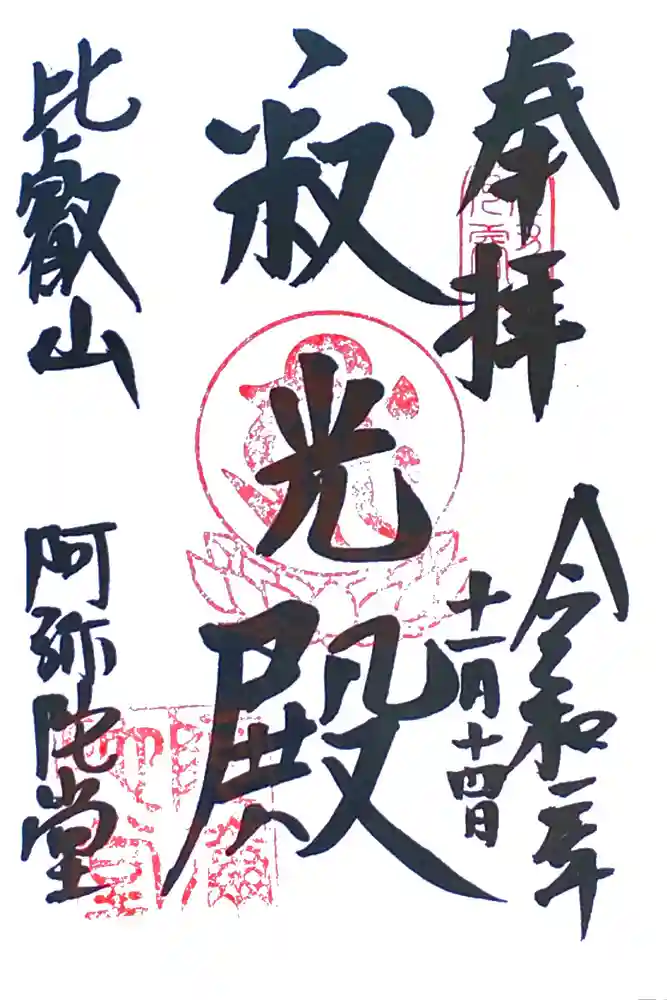 奉拝
令和二年
十一月十四日
寂光殿
比叡山
阿弥陀堂